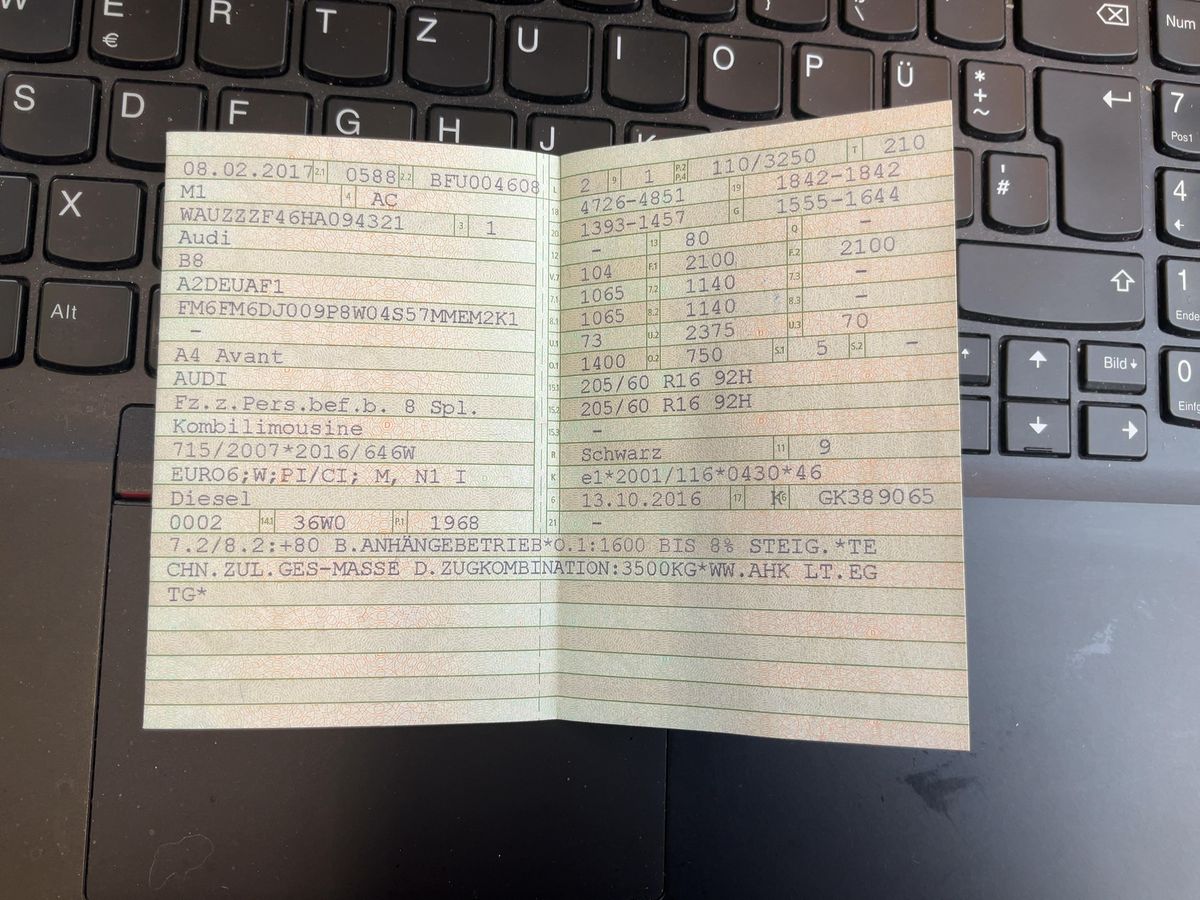 W E € R T Z U I O P Ü * + ~ Num
S D F G H J K 7 Pos1
X ' # 4
Alt 1 Ende
Bild 0 Einfg
08.02.2017 2.1 0588 2.2 BFU004608
M1 4 AC
WAUZZZF46HA094321 3 1
Audi
B8
A2DEUAF1
FM6FM6DJ009P8W04S57MMEM2K1
–
A4 Avant
AUDI
Fz.z.Pers.bef.b. 8 Spl.
Kombilimousine
715/2007*2016/646W
EURO6;W;PI/CI; M, N1 I
Diesel
0002 14.1 36W0 P.1 1968
L 2 9 1 P.2 P.4 110/3250 T 210
18 4726-4851 19 1842-1842
20 1393-1457 G 1555-1644
12 – 13 80 Q –
V.7 104 F.1 2100 F.2 2100
7.1 1065 7.2 1140 7.3 –
8.1 1065 8.2 1140 8.3 –
U.1 73 U.2 2375 U.3 70
O.1 1400 O.2 750 S.1 5 S.2 –
15.1 205/60 R16 92H
15.2 205/60 R16 92H
15.3 –
R Schwarz 11 9
K e1*2001/116*0430*46
6 13.10.2016 17 K 16 GK389065
21 –
7.2/8.2:+80 B.ANHÄNGEBETRIEB*O.1:1600 BIS 8% STEIG.*TE
CHN.ZUL.GES-MASSE D.ZUGKOMBINATION:3500KG*WW.AHK LT.EG
TG*